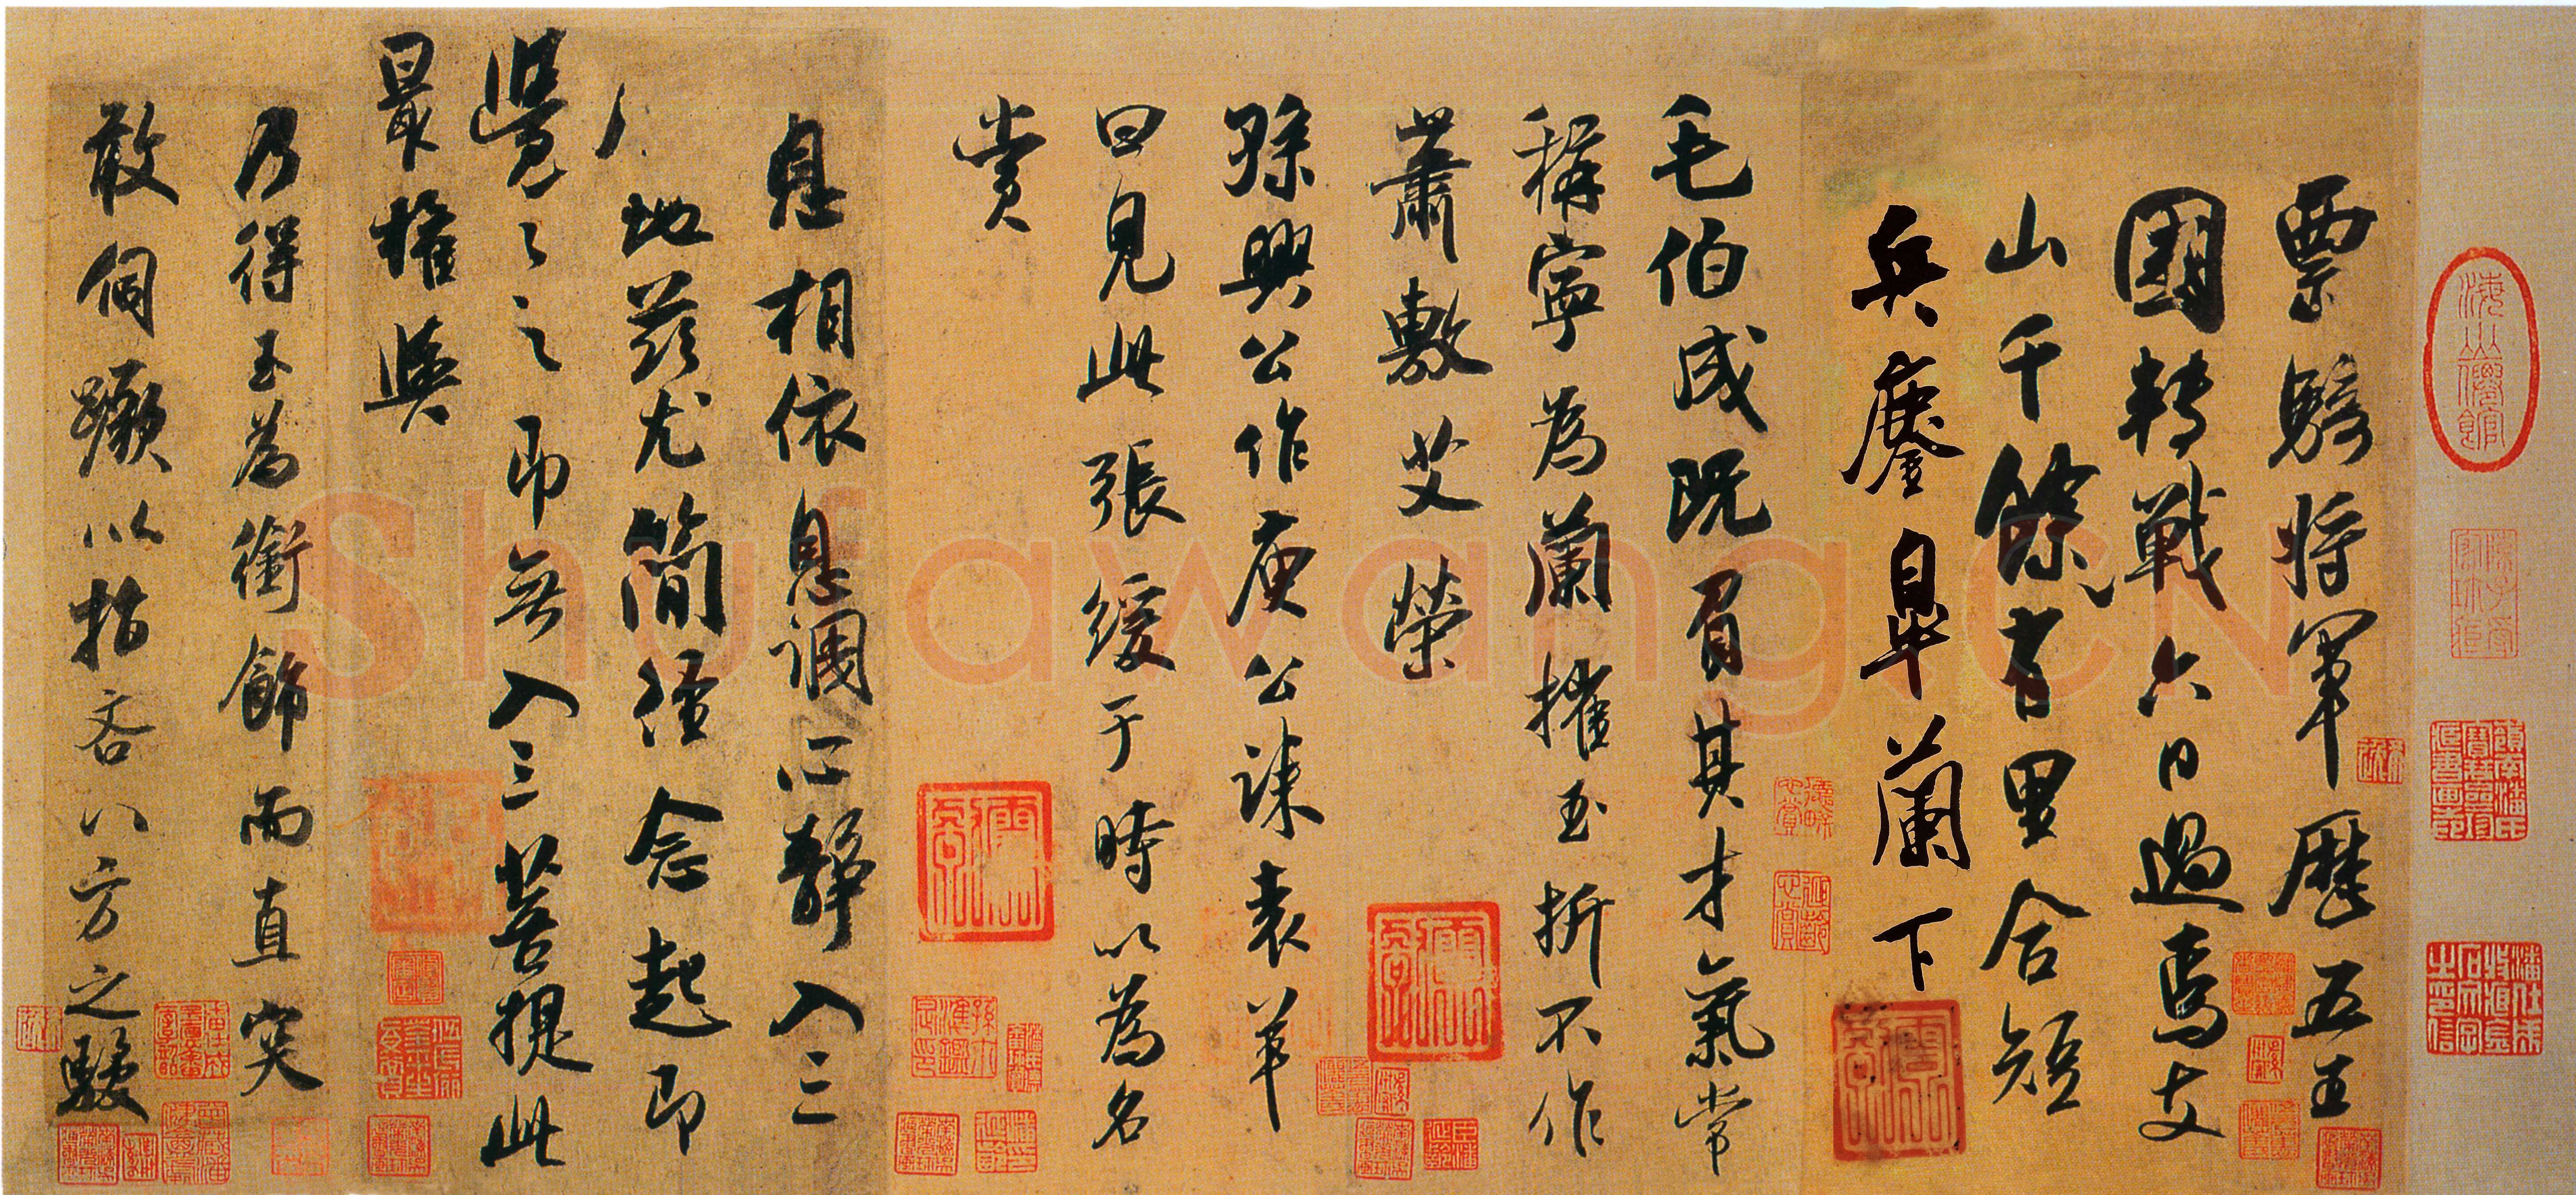 票騎將軍歷五王
國轉戰六日過焉支
山千餘有里合短
兵鏖皐蘭下
毛伯成既負其才氣常
稱寧為蘭摧玉折不作
蕭敷艾榮
孫興公作庾公誄袁羊
曰見此張緩于時以為名
賞
息相依息調心靜入三
地茲尤簡徑念起即
覺〻之即無入三菩提此
最權輿
乃得玉為銜飾而直突
敢伺蹶以指吝八方之駿
Shufawang.CN